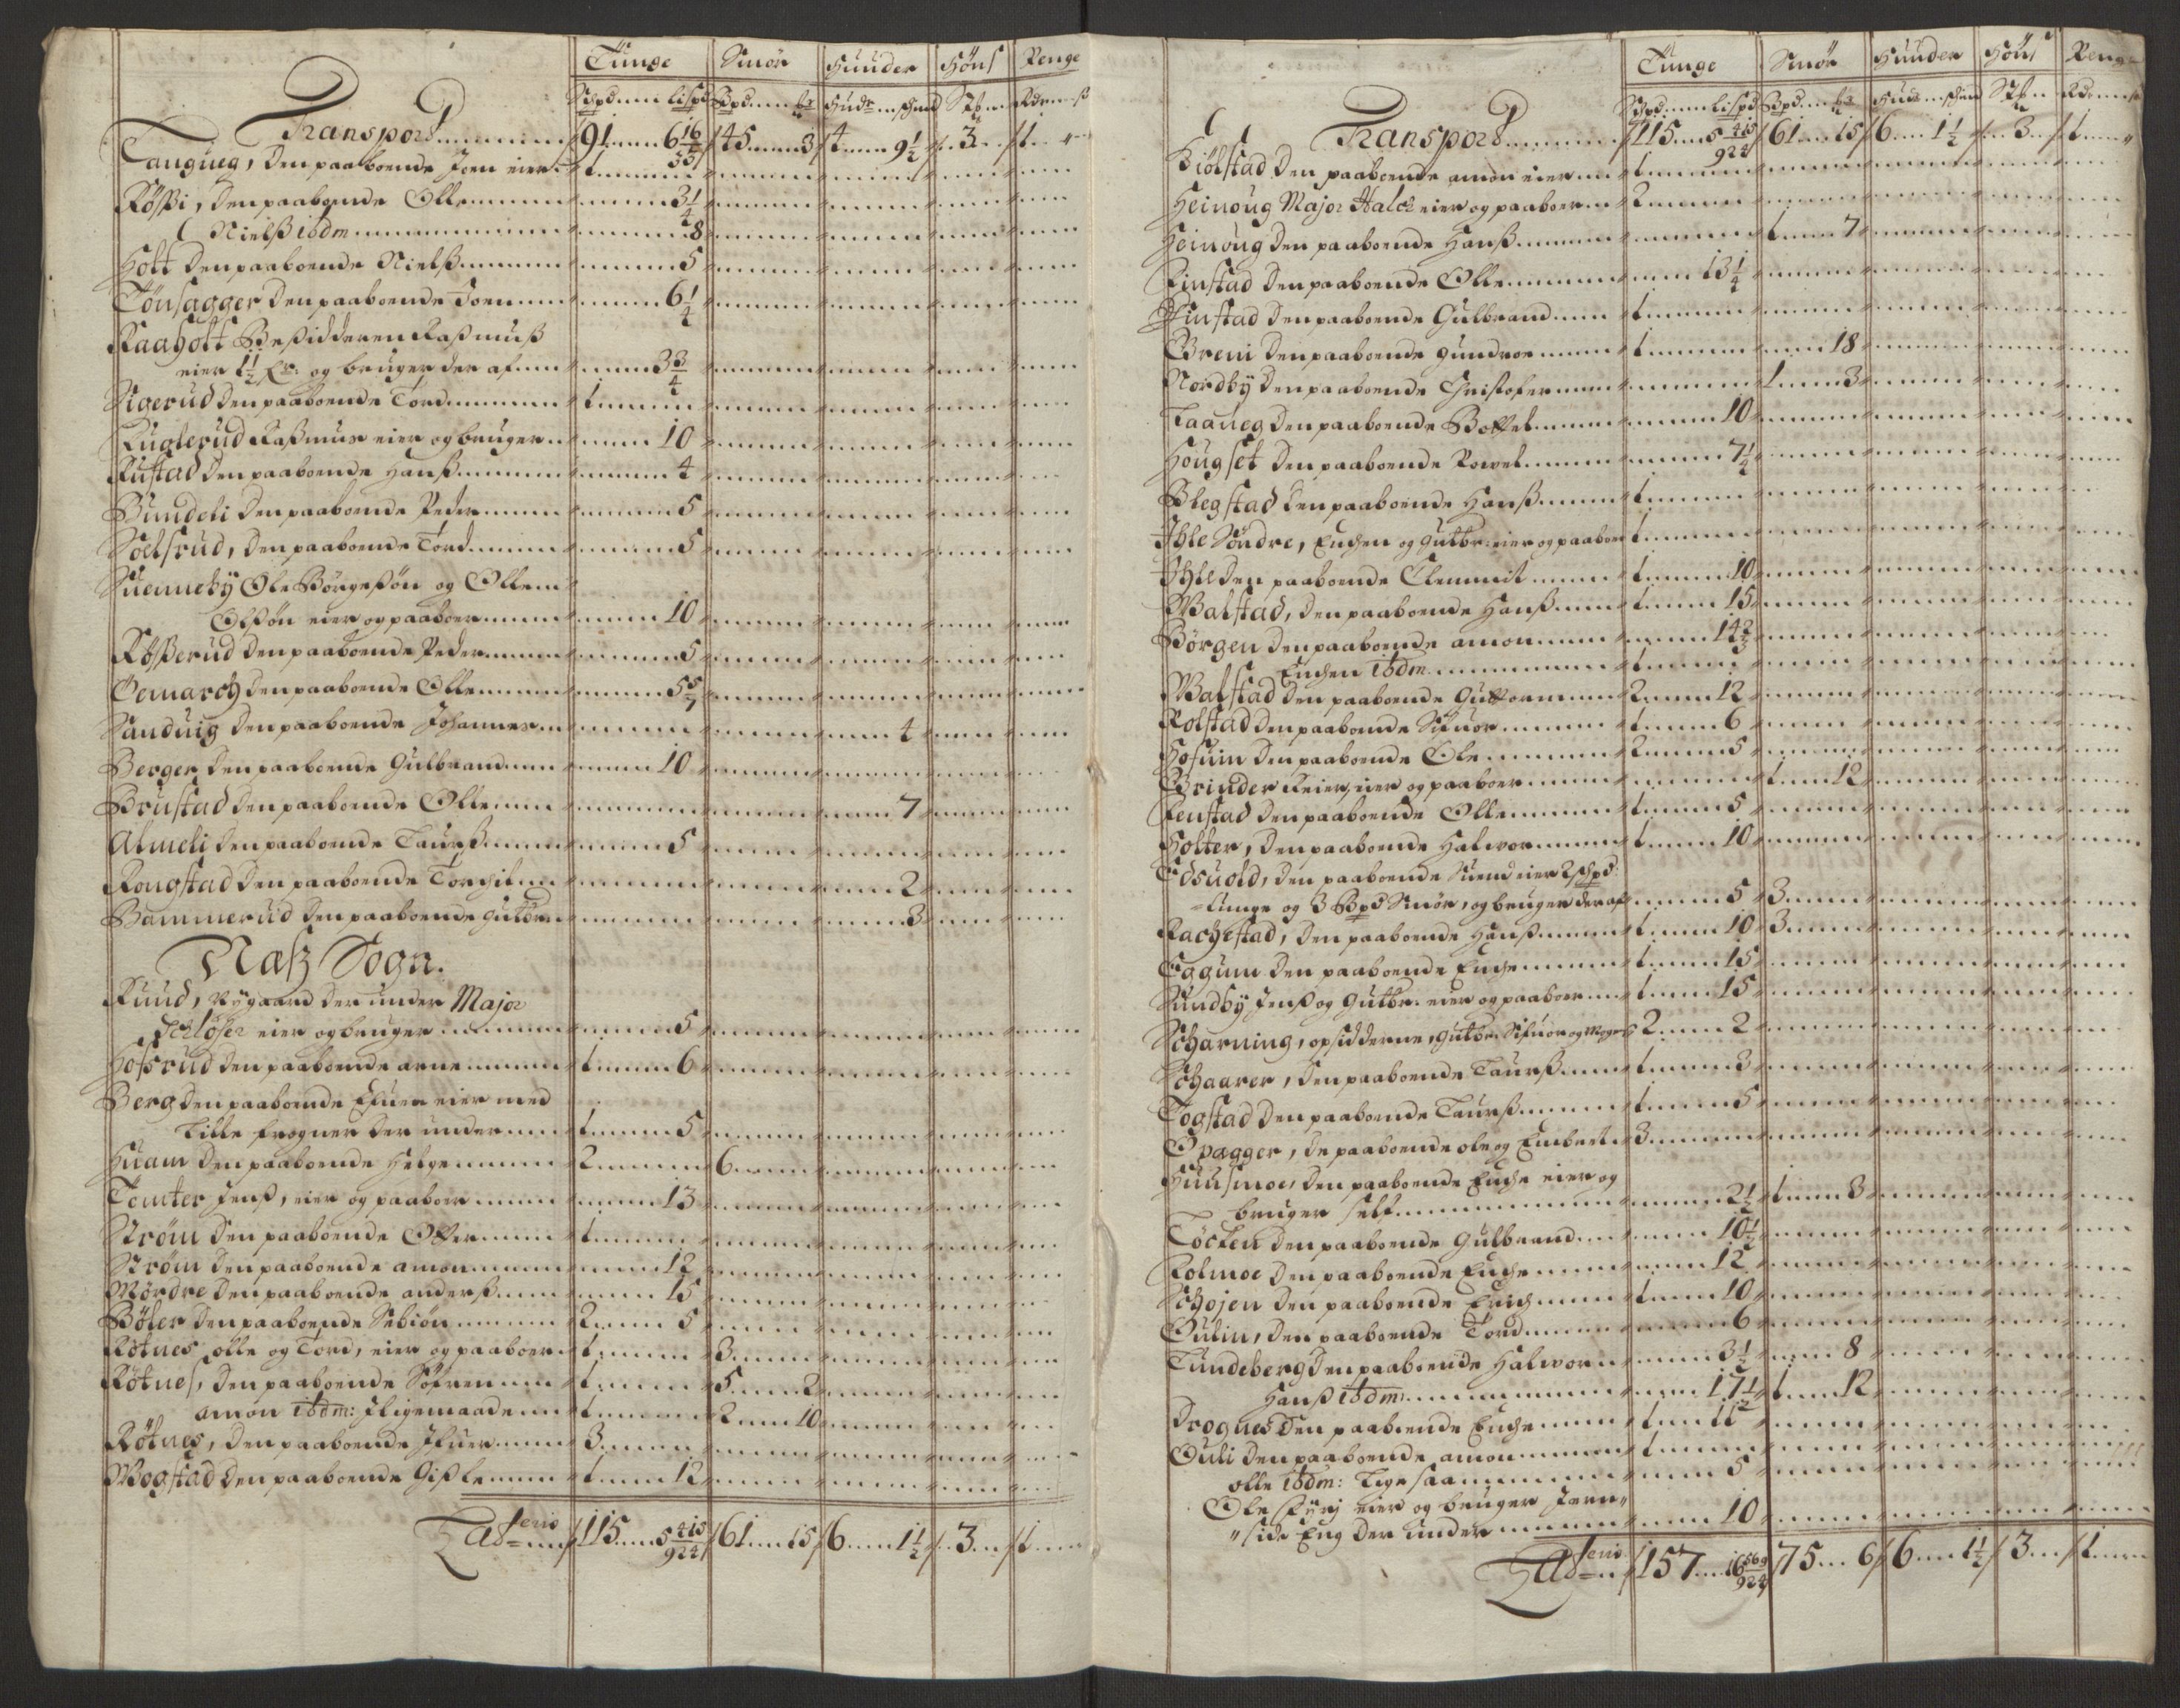 Tunge Smör Huuder Höns Penge
Schpd lispd Bpd Huder schind Stk Rdr ß
Transport 91 6 16/55 45 3 4 9 1/2 3 1
Taugueg, den paaboende Joen eier 1
Rößi, den paaboende Olle 3 1/4
Nielß ibdm 8
Holt den paaboende Nielß 5
Tönsagger den paaboende Joen 6 1/4
Raaholt Besidderen Raßmuß
eier 1 1/2 og bruger der af 3 3/4
Sigerud den paaboende Tord 1
Kuglerud Raßmus eier og bruger 10
Rustad den paaboende Hanß 4
Bundeli den paaboende Peder 5
Soelsrud, den paaboende Tord 5
Suenneby Ole Börgeßön og Olle
Olßön eier og paaboer 10
Rößerud den paaboende Peder 5
Oemarch den paaboende Olle 5 5/7
Sanduig den paaboende Johannes 4
Berger den paaboende Gulbrand 10
Brustad den paaboende Olle 7
Almeli den paaboende Laurß 5
Rongstad den paaboende Torchil 2
Bammerud den paaboende Gulbrd 3
Næß Sogn.
Ruud, Rygaard der under Major
Schlöser eier og bruger 5
Hofsrud den paaboende arne 6
Berg den paaboende Efuen eier med
Lille frogner der under 1 5
Huam den paaboende Helge 2 6
Tomter Jenß, eier og paaboer 13
Ström den paaboende Otter 1
Ström den paaboende amon 12
Mördre den paaboende anderß 15
Böler den paaboende Sebiön 2 5
Rötnes olle og Tord, eier og paaboer 1 3
Rötnes, den paaboende Söfren 1 5 2
amon ibdm: Jligemaade 1 2 10
Rötnes, den paaboende Jfuer 3
Wogstad den paaboende Gißle 1 12
Lateris 115 5 415/924 61 15 6 1 1/2 3 1
Tunge Smör Huuder Höns Penge
Schpd lispd Bpd Huder schind Stk Rdr
Transport 115 5 415/924 61 15 6 1 1/2 3 1
Biölstad den paaboende amon eier 1
Heinoug Major Halck eier og paaboer 2
Heinoug den paaboende Hanß 1 7
Finstad den paaboende Olle 13 1/4
Finstad den paaboende Gulbrand 1
Breni den paaboende gundroe 1 18
Nordby den paaboende Christofer 1 3
Taaneg den paaboende Bottel 10
Hougset den paaboende Powel 7 1/4
Blegstad den paaboende Hanß 1
Ihle Söndre, Erichen og gulbr: eier og paaboer 1
Ihle den paaboende Clemmit 1 10
Walstad, den paaboende Hanß 1 15
Börgen den paaboende amon 14 2/3
Erichen ibdm 1
Walstad den paaboende Guttorm 2 12
Rolstad den paaboende Sifuer 1 6
Hosuim den paaboende Ole 2 5
Brinder Reier, eier og paaboer 1 12
Fenstad den paaboende Olle 1 5
Holter, den paaboende Halwor 1 10
Edsuold, den paaboende Suend eier 2 schpd:
Tunge og 3 Bpd Smör, og bruger der af 5 3
Rachestad, den paaboende Hanß 1 10 3
Eggum den paaboende Erich 1 15
Sundby Jenß og Gulbr: eier og paaboer 1 15
Scharning, opsidderne, Gulbr: Sifuer og Mogens 2 2
Schaarer, den paaboende Laurß 1 3
Togstad den paaboende Laurß 1 5
Opagger, de paaboende ole og Embret 3
Huusmoe, den paaboende Erich eier og
bruger self 2 1/2 1 3
Töcken den paaboende Gulbrand 10 1/2
Kolmoe den paaboende Erich 12
Schojen den paaboende Erich 1 10
Oulin, den paaboende Tord 6
Tundeberg den paaboende Halwor 3 1/2 8
Hanß ibdm: 17 1/2 1 12
Drognes den paaboende Erich 1 11
Ouli den paaboende amon 1
olle ibdm: Lige saa 5
Ole eier og bruger Jern
side Eng der under 10
Lateris 157 16 569/924 75 6 6 1 1/2 3 1